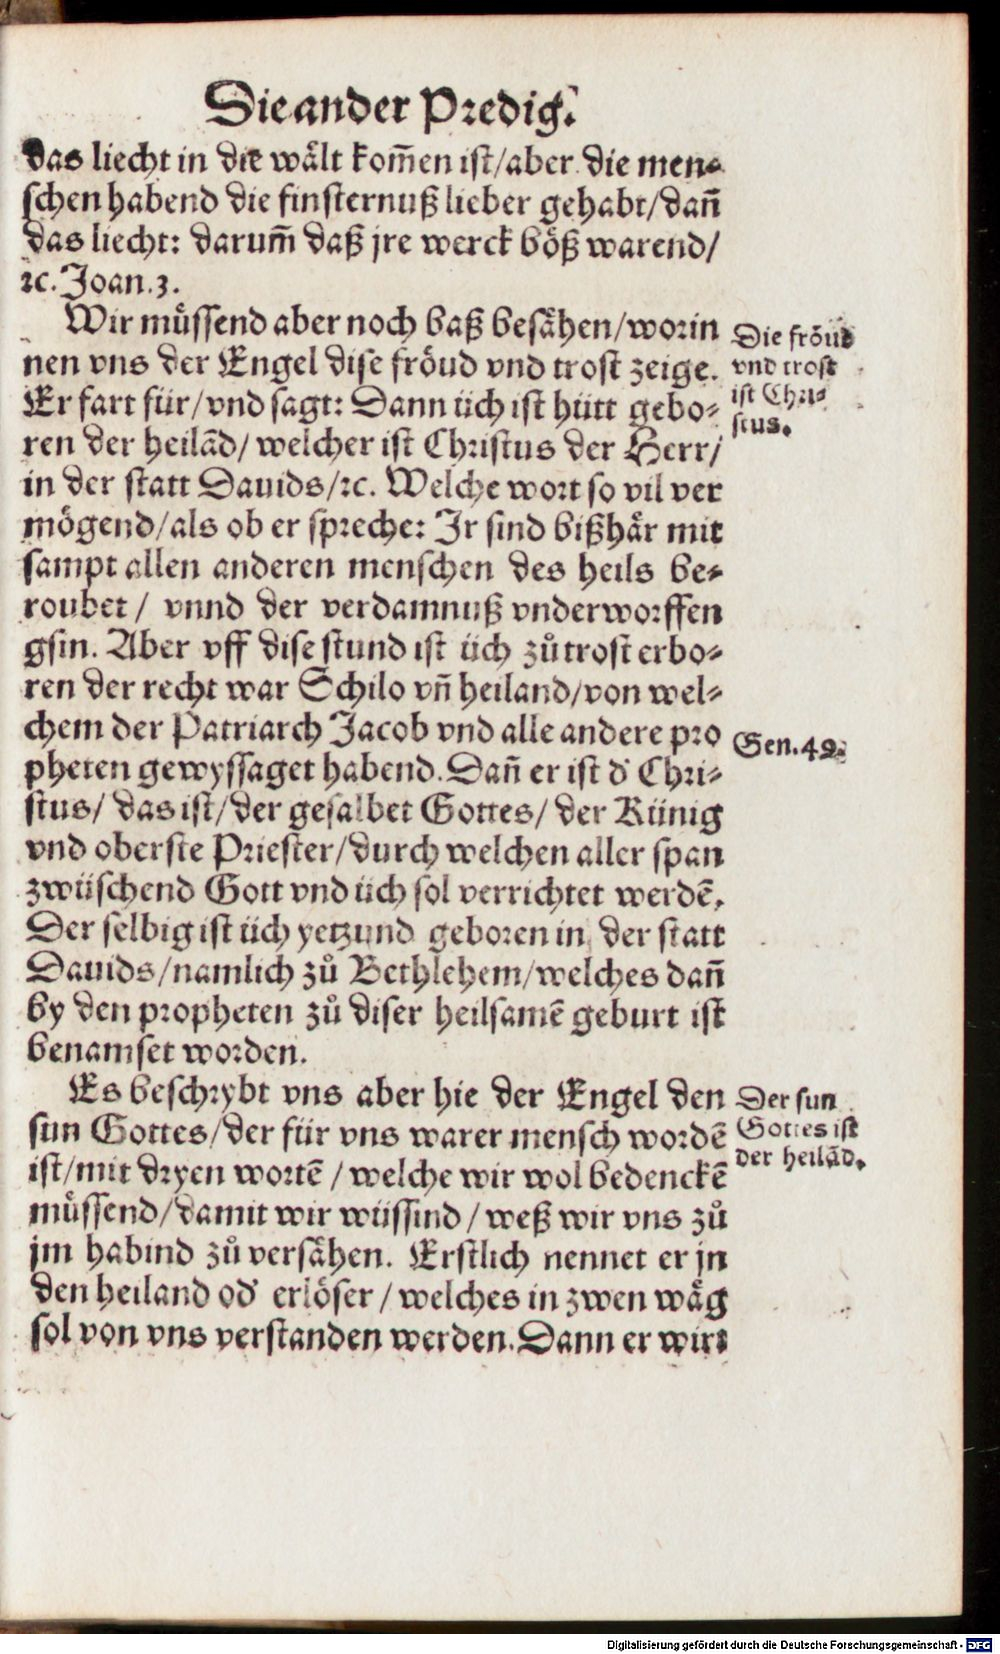 Die ander Predig.
das liecht in die wält kom̃en ist/aber die men⸗
schen habend die finsternuß lieber gehabt/dañ
das liecht: darum̃ daß jre werck böß warend/
ꝛc. Joan.3.
Wir müssend aber noch baß besähen/worin
nen vns der Engel dise fröud vnd trost zeige.
Er fart für/vnd sagt: Dann üch ist hütt gebo⸗
ren der heilãd/ welcher ist Christus der Herr/
in der statt Dauids/ꝛc. Welche wort so vil ver
mögend/als ob er spreche: Jr sind bißhär mit
sampt allen anderen menschen des heils be⸗
roubet / vnnd der verdamnuß vnderworffen
gsin. Aber vff dise stund ist üch zů trost erbo⸗
ren der recht war Schilo vñ heiland/von wel⸗
chem der Patriarch Jacob vnd alle andere pro
pheten gewyssaget habend. Dañ er ist d' Chri⸗
stus/ das ist/der gesalbet Gottes/ der Künig
vnd oberste Priester/durch welchen aller span
zwüschend Gott vnd üch sol verrichtet werdẽ.
Der selbig ist üch yetzund geboren in der statt
Dauids/namlich zů Bethlehem/welches dañ
by den propheten zů diser heilsamẽ geburt ist
benamset worden.
Es beschrybt vns aber hie der Engel den
sun Gottes/der für vns warer mensch wordẽ
ist/mit dryen wortẽ / welche wir wol bedenckẽ
müssend/damit wir wüssind / weß wir vns zů
jm habind zů versähen. Erstlich nennet er jn
den heiland od' erlöser / welches in zwen wäg
sol von vns verstanden werden. Dann er wirt
Die fröud
vnd trost
ist Chri⸗
stus.
Gen.49.
Der sun
Gottes ist
der heilãd.
Digitalisierung gefördert durch die Deutsche Forschungsgemeinschaft - DFG